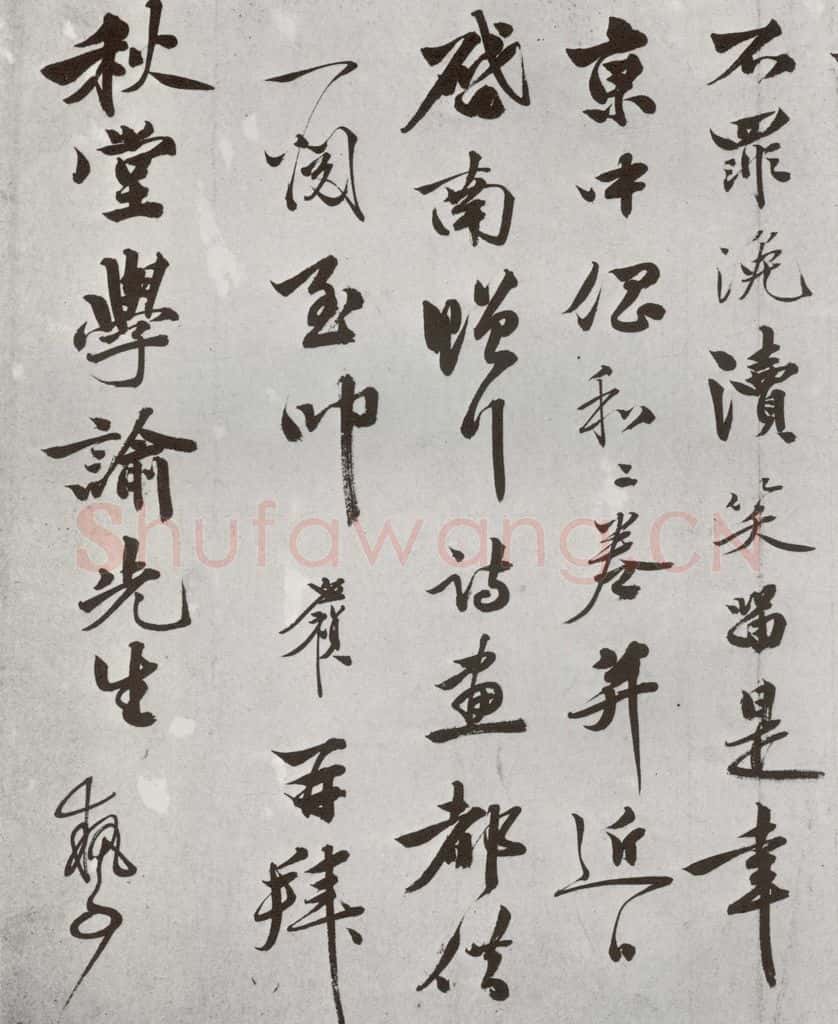 不罪浼瀆笑留是幸
東中倡和二卷并近日
啟南贈行詩畫都借
一閱至叩 再拜
秋堂學諭先生 執事
Shufawang.CN